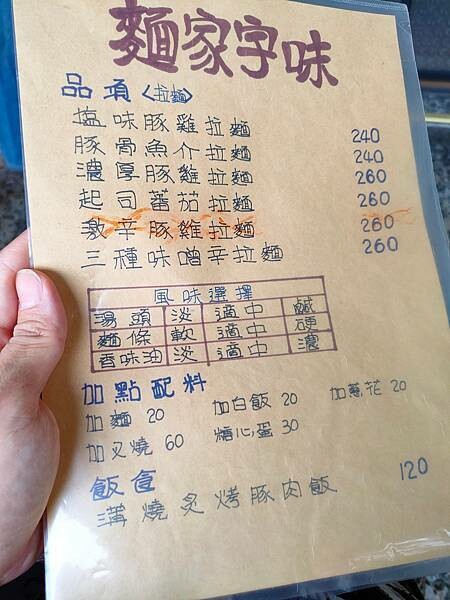 麵家字味
品項<拉麵>
塩味豚雞拉麵 240
豚骨魚介拉麵 240
濃厚豚雞拉麵 260
起司蕃茄拉麵 260
激辛豚雞拉麵 260
三種味噌辛拉麵 260
風味選擇
湯頭 淡 適中 鹹
麵條 軟 適中 硬
香味油 淡 適中 濃
加點配料
加麵 20 加白飯 20 加蔥花 20
加叉燒 60 糖心蛋 30
飯食
溝燒炙烤豚肉飯 120